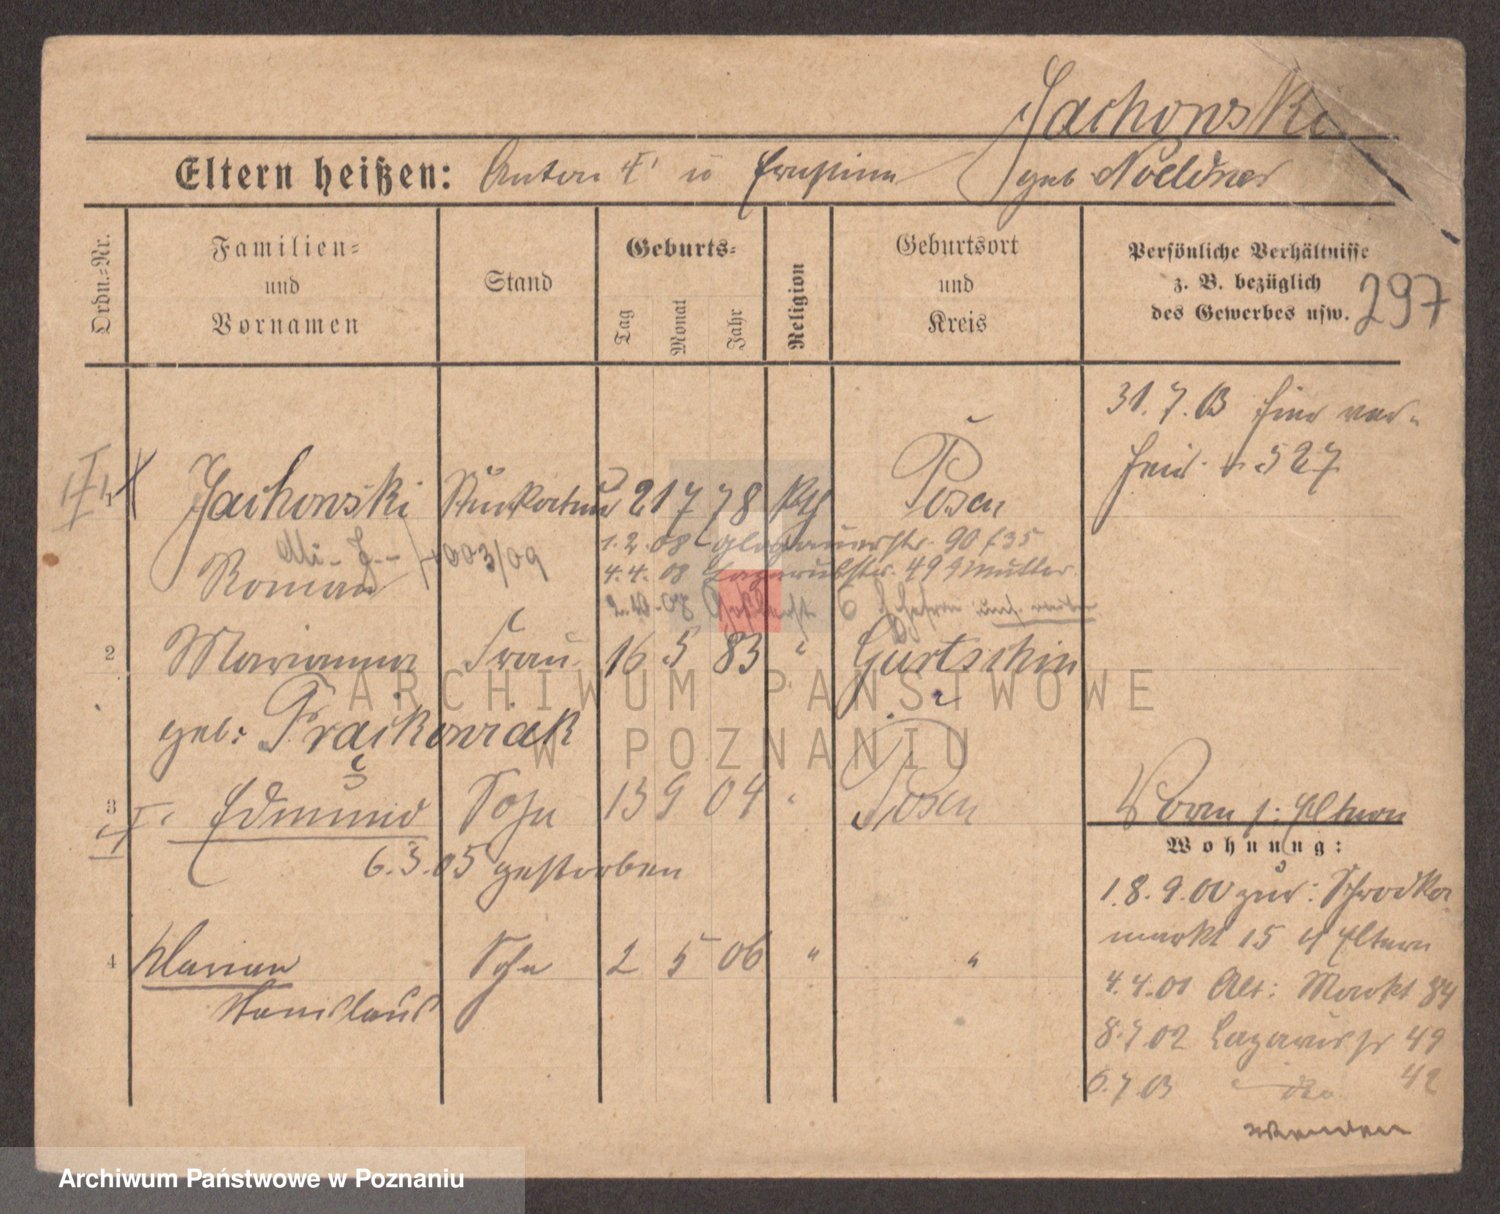 Jachowski
Eltern heißen: Anton † u Ernstine geb Noeldner
Ordn.-Nr.
Familien- und Vornamen
Stand
Geburts-
Tag
Monat
Jahr
Religion
Geburtsort und Kreis
Persönliche Verhältnisse z. B. bezüglich des Gewerbes usw.
297
31. 7. 03 hier ver-
heir. 527
1 Jachowski Stuckateur 21 7 78 kth Posen
Roman 1003/09
1. 2. 08 Glogauerstr. 90
4. 4. 08 Lazarusstr. 49 Mutter
2 Marianna Frau 16 5 83 " Gurtschin
geb: Frąckowiak
3 Edmund Sohn 13 9 04 " Posen
6. 3. 05 gestorben
4 Marian Sohn 2 5 06 " "
Stanislaus
Vorm s: Eltern
Wohnung:
1. 8. 9. 00 zur: Schrodka
markt 15 Eltern
4. 4. 01 Alt: Markt 84
8. 7 02 Lazarusstr 49
6. 7 03 dto 42
wenden
ARCHIWUM PAŃSTWOWE
W POZNANIU
Archiwum Państwowe w Poznaniu